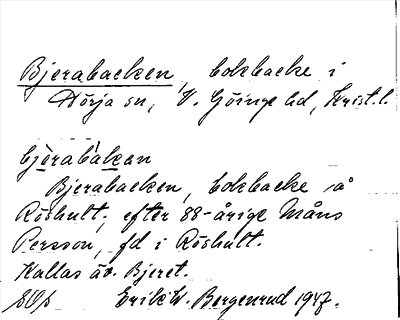 Bjerabacken, bokbacke i
Hörja sn, V. Göinge hd, Krist. l.
bjèrabàkan
Bjerabacken, bokbacke å
Röshult, efter 88-årige Måns
Persson, fd i Röshult.
Kallas äv. Bjeret.
Erik W. Bergenrud 1947.